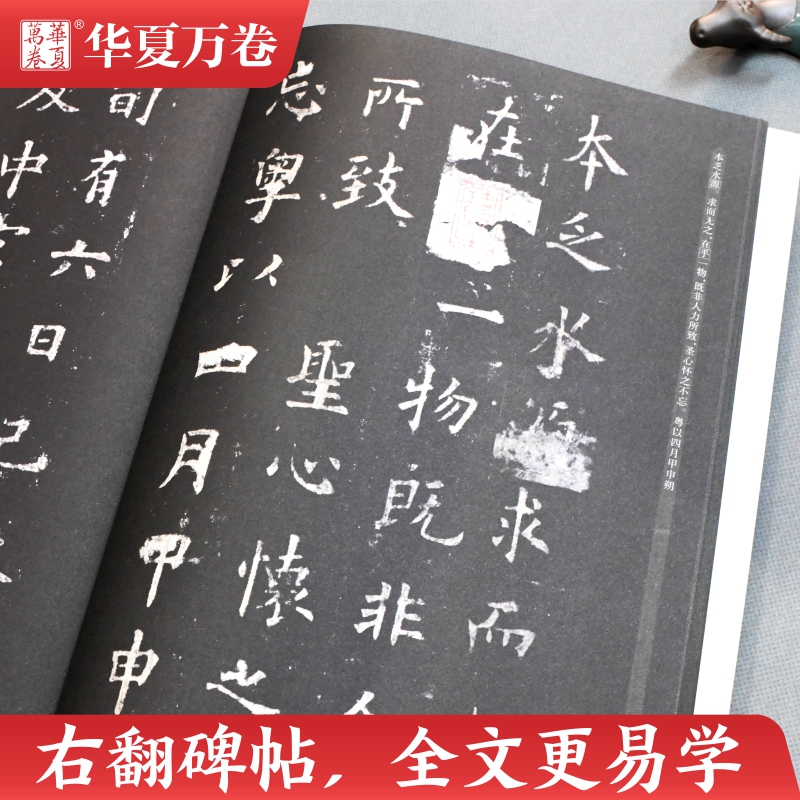 華夏
萬卷
®
华夏万卷
本乏水源。求而无之，在乎一物，既非人力所致，圣心怀之不忘。粤以四月甲申朔
本乏水源求而
在乎一物既非人
所致聖心懷之
忘粵以四月甲申
旬有六日記
中宮
右翻碑帖，全文更易学